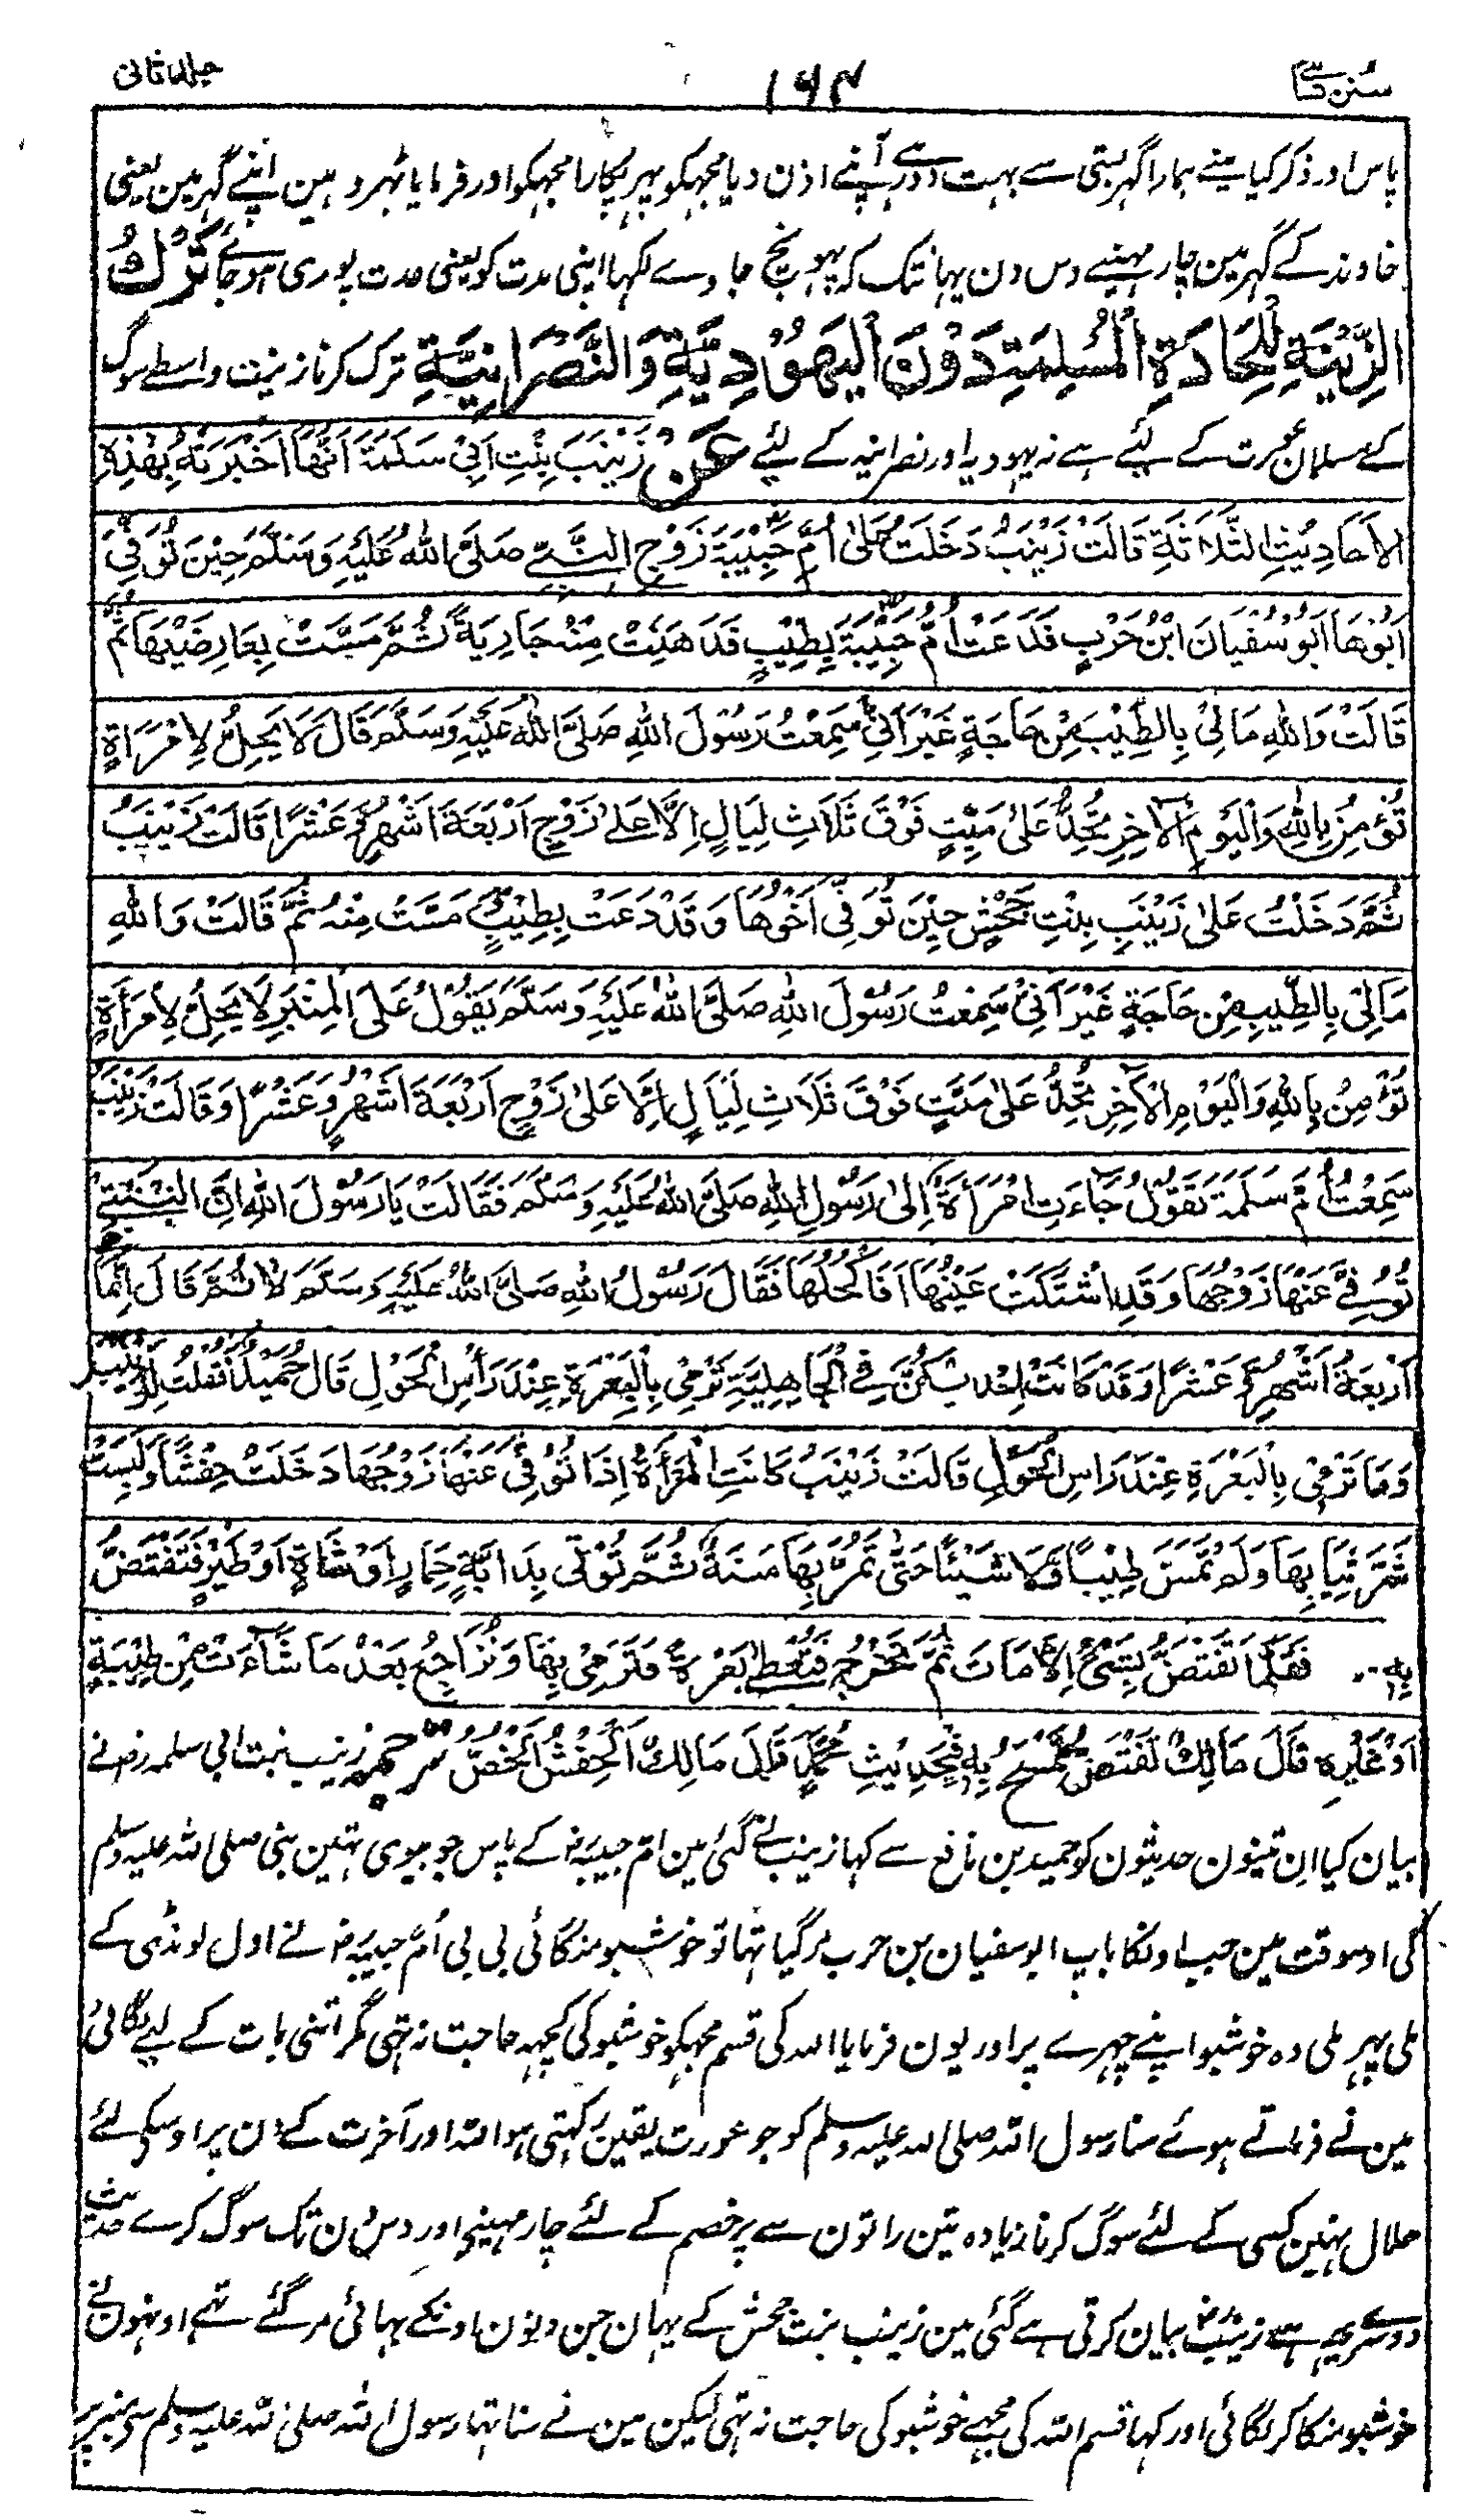 سنن نسائی ۱۶۴ جلد ثانی
پاس اور ذکر کیا مینے ہمارا گہر بستی سے بہت دور ہے آپنے اذن دیا مجہکو پہر پکارا مجہکو اور فرمایا ٹہر وہین اپنے گہر مین یعنی
خاوند کے گہر مین چار مہینے دس دن یہانتک کہ پہونچ جاوے لکہا اپنی مدت کو یعنی عدت پوری ہو جائے تَرْكُ
الزِّيْنَةِ لِلْحَادَّةِ الْمُسْلِمَةِ دُوْنَ الْيَهُوْدِيَّةِ وَالنَّصْرَانِيَّةِ ترک کرنا زینت واسطے سوگ
کے مسلمان عورت کے لیئے ہے نہ یہودیہ اور نصرانیہ کے لیئے عَنْ زَيْنَبَ بِنْتِ اَبِيْ سَلَمَةَ اَنَّهَا اَخْبَرَتْهُ بِهٰذِهِ
الْاَحَادِيْثِ الثَّلَاثَةِ قَالَتْ زَيْنَبُ دَخَلْتُ عَلٰى اُمِّ حَبِيْبَةَ زَوْجِ النَّبِيِّ صَلَّى اللهُ عَلَيْهِ وَسَلَّمَ حِيْنَ تُوُفِّيَ
اَبُوْهَا اَبُوْ سُفْيَانَ ابْنُ حَرْبٍ فَدَعَتْ اُمُّ حَبِيْبَةَ بِطِيْبٍ فَدَهَنَتْ مِنْهُ جَارِيَةً ثُمَّ مَسَّتْ بِعَارِضَيْهَا ثُمَّ
قَالَتْ وَاللهِ مَالِيْ بِالطِّيْبِ مِنْ حَاجَةٍ غَيْرَ اَنِّيْ سَمِعْتُ رَسُوْلَ اللهِ صَلَّى اللهُ عَلَيْهِ وَسَلَّمَ قَالَ لَا يَحِلُّ لِامْرَاَةٍ
تُؤْمِنُ بِاللهِ وَالْيَوْمِ الْاٰخِرِ تُحِدُّ عَلٰى مَيِّتٍ فَوْقَ ثَلَاثِ لَيَالٍ اِلَّا عَلٰى زَوْجٍ اَرْبَعَةَ اَشْهُرٍ وَّعَشْرًا قَالَتْ زَيْنَبُ
ثُمَّ دَخَلْتُ عَلٰى زَيْنَبِ بِنْتِ جَحْشٍ حِيْنَ تُوُفِّيَ اَخُوْهَا وَقَدْ دَعَتْ بِطِيْبٍ مَسَّتْ مِنْهُ ثُمَّ قَالَتْ وَاللهِ
مَالِيْ بِالطِّيْبِ مِنْ حَاجَةٍ غَيْرَ اَنِّيْ سَمِعْتُ رَسُوْلَ اللهِ صَلَّى اللهُ عَلَيْهِ وَسَلَّمَ يَقُوْلُ عَلَى الْمِنْبَرِ لَا يَحِلُّ لِامْرَأَةٍ
تُؤْمِنُ بِاللهِ وَالْيَوْمِ الْاٰخِرِ تُحِدُّ عَلٰى مَيِّتٍ فَوْقَ ثَلَاثِ لَيَالٍ اِلَّا عَلٰى زَوْجٍ اَرْبَعَةَ اَشْهُرٍ وَعَشْرًا وَقَالَتْ زَيْنَبُ
سَمِعْتُ اُمَّ سَلَمَةَ تَقُوْلُ جَاءَتِ امْرَاَةٌ اِلٰى رَسُوْلِ اللهِ صَلَّى اللهُ عَلَيْهِ وَسَلَّمَ فَقَالَتْ يَا رَسُوْلَ اللهِ اِنَّ ابْنَتِيْ
تُوُفِّيَ عَنْهَا زَوْجُهَا وَقَدِ اشْتَكَتْ عَيْنُهَا اَفَاَكْحُلُهَا فَقَالَ رَسُوْلُ اللهِ صَلَّى اللهُ عَلَيْهِ وَسَلَّمَ لَا ثُمَّ قَالَ اِنَّمَا
اَرْبَعَةُ اَشْهُرٍ وَّعَشْرًا وَقَدْ كَانَتْ اِحْدٰىكُنَّ فِي الْجَاهِلِيَّةِ تَرْمِيْ بِالْبَعْرَةِ عِنْدَ رَأْسِ الْحَوْلِ قَالَ حُمَيْدٌ فَقُلْتُ لِزَيْنَبَ
وَمَا تَرْمِيْ بِالْبَعْرَةِ عِنْدَ رَاسِ الْحَوْلِ قَالَتْ زَيْنَبُ كَانَتِ الْمَرْأَةُ اِذَا تُوُفِّيَ عَنْهَا زَوْجُهَا دَخَلَتْ حِفْشًا وَلَبِسَتْ
شَرَّ ثِيَابِهَا وَلَمْ تَمَسَّ طِيْبًا وَّلَا شَيْئًا حَتّٰى تَمُرَّ بِهَا سَنَةٌ ثُمَّ تُؤْتٰى بِدَابَّةٍ حِمَارٍ اَوْ شَاةٍ اَوْ طَيْرٍ فَتَفْتَضُّ
بِهِ فَقَلَّمَا تَفْتَضُّ بِشَيْءٍ اِلَّا مَاتَ ثُمَّ تَخْرُجُ فَتُعْطٰى بَعْرَةً فَتَرْمِيْ بِهَا وَتُرَاجِعُ بَعْدُ مَا شَاءَتْ مِنْ طِيْبٍ
اَوْ غَيْرِهٖ قَالَ مَالِكٌ تَفْتَضُّ تَمْسَحُ بِهٖ فِيْ حَدِيْثِ مُحَمَّدٍ قَالَ مَالِكٌ اَلْحِفْشُ الْخُصُّ ترجمہ زینب بنت ابی سلمہ رض نے
بیان کیا ان تینون حدیثون کو حمید بن نافع سے کہا زینب نے گئی مین ام حبیبہ رض کے پاس جو بیوی تہین نبی صلی اللہ علیہ وسلم
کی اوسوقت مین جب اونکا باپ ابو سفیان بن حرب مر گیا تہا تو خوشبو منگائی بی بی اُم حبیبہ رض نے اول لونڈی کے
ملی پہر ملی وہ خوشبو اپنے چہرے پر اور یون فرمایا اللہ کی قسم مجہکو خوشبو کی کچہہ حاجت نہ تہی مگر اتنی بات کے لیے لگائی
مین نے فرماتے ہوئے سنا رسول اللہ صلی اللہ علیہ وسلم کو جو عورت یقین رکہتی ہو اللہ اور آخرت کے دن پر اوسکے لئے
حلال نہین کسی کے لئے سوگ کرنا زیادہ تین راتون سے پر خصم کے لئے چار مہینے اور دس دن تک سوگ کرے حدیث
دوسری یہ ہے زینب رض بیان کرتی ہے گئی مین زینب بنت جحش کے یہان جن دنون اونکے بہائی مر گئے تہے اونہون نے
خوشبو منگا کر لگائی اور کہا قسم اللہ کی مجہے خوشبو کی حاجت نہ تہی لیکن مین نے سنا تہا رسول اللہ صلی اللہ علیہ وسلم سے منبر پر